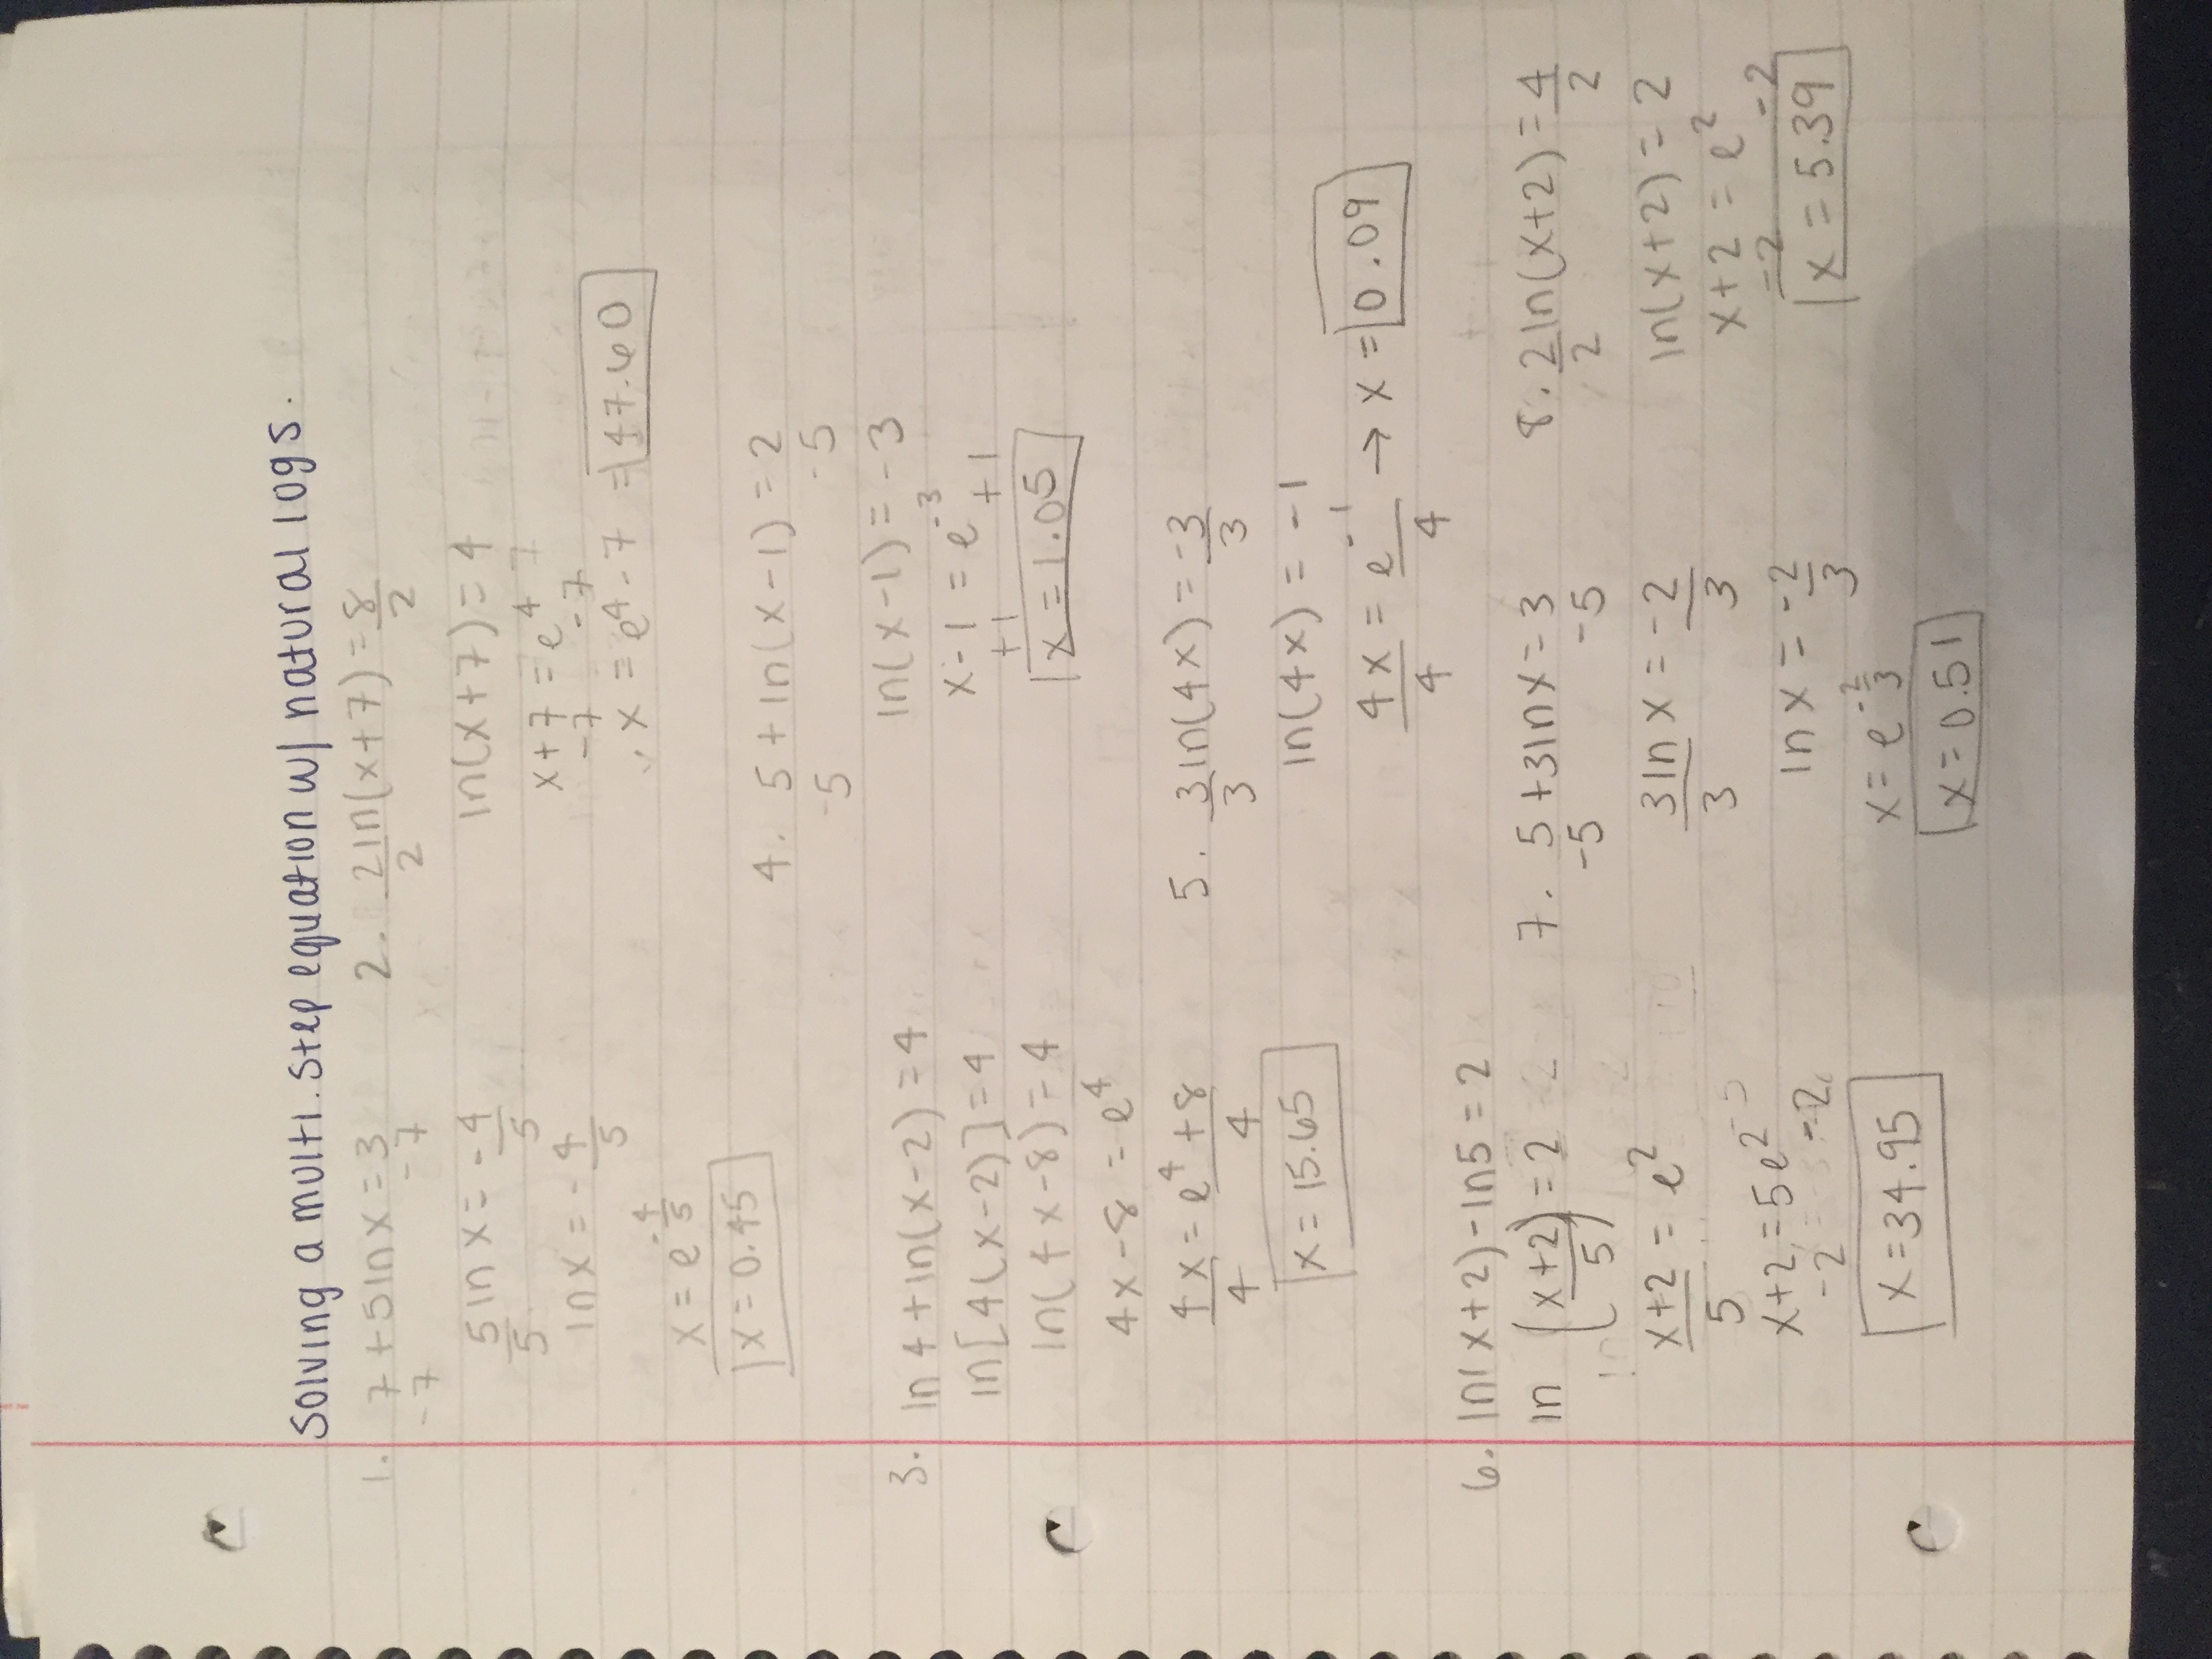 Solving a multi-step equation w/ natural logs.
1. 7 + 5 ln x = 3
-7 -7
5 ln x = -4
5 5
ln x = -4/5
x = e^-4/5
x = 0.45
2. 2 ln(x+7) = 8
2 2
ln(x+7) = 4
x+7 = e^4
-7 -7
x = e^4 - 7 = 47.60
3. ln 4 + ln(x-2) = 4
ln[4(x-2)] = 4
ln(4x-8) = 4
4x-8 = e^4
4x = e^4 + 8
4 4
x = 15.65
4. 5 + ln(x-1) = 2
-5 -5
ln(x-1) = -3
x-1 = e^-3
+1 +1
x = 1.05
5. 3 ln(4x) = -3
3 3
ln(4x) = -1
4x = e^-1 → x = 0.09
4 4
6. ln(x+2) - ln5 = 2
ln (x+2/5) = 2
x+2 = e^2
5
x+2 = 5e^2
-2 -2
x = 34.95
7. 5 + 3 ln x = 3
-5 -5
3 ln x = -2
3 3
ln x = -2/3
x = e^-2/3
x = 0.51
8. 2 ln(x+2) = 4
2 2
ln(x+2) = 2
x+2 = e^2
-2 -2
x = 5.39